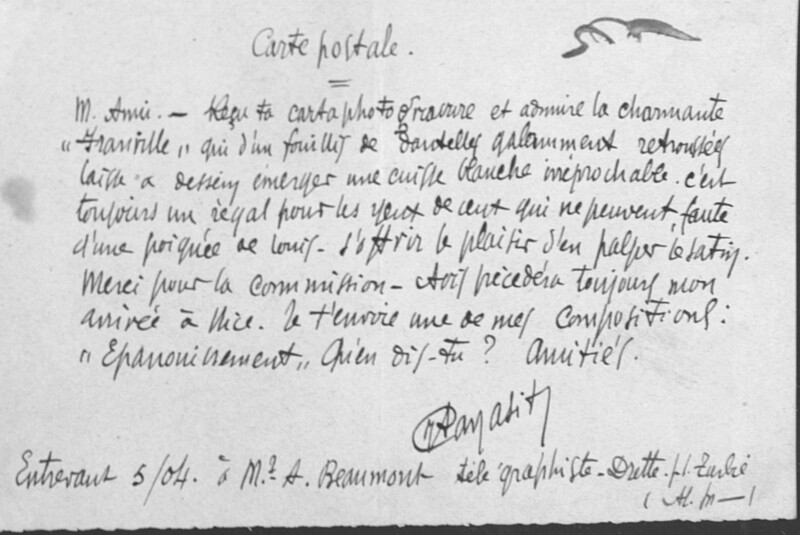 Carte postale.
M. Ami. — Reçu ta cartaphoto gravure et admire la charmante
"Granville" qui d'un fouillis de dentelles galamment retroussées
laisse à dessein émerger une cuisse blanche irréprochable. c'est
toujours un régal pour les yeux de ceux qui ne peuvent faute
d'une poignée de louis - s'offrir le plaisir d'en palper le satin.
Merci pour la commission - Avis précédéra toujours mon
arrivée à Nice. Je t'envoie une de mes compositions:
"Epanouissement" Qu'en dis-tu? Amitiés.
Entrevaux 5/04. à Mr A. Beaumont télégraphiste